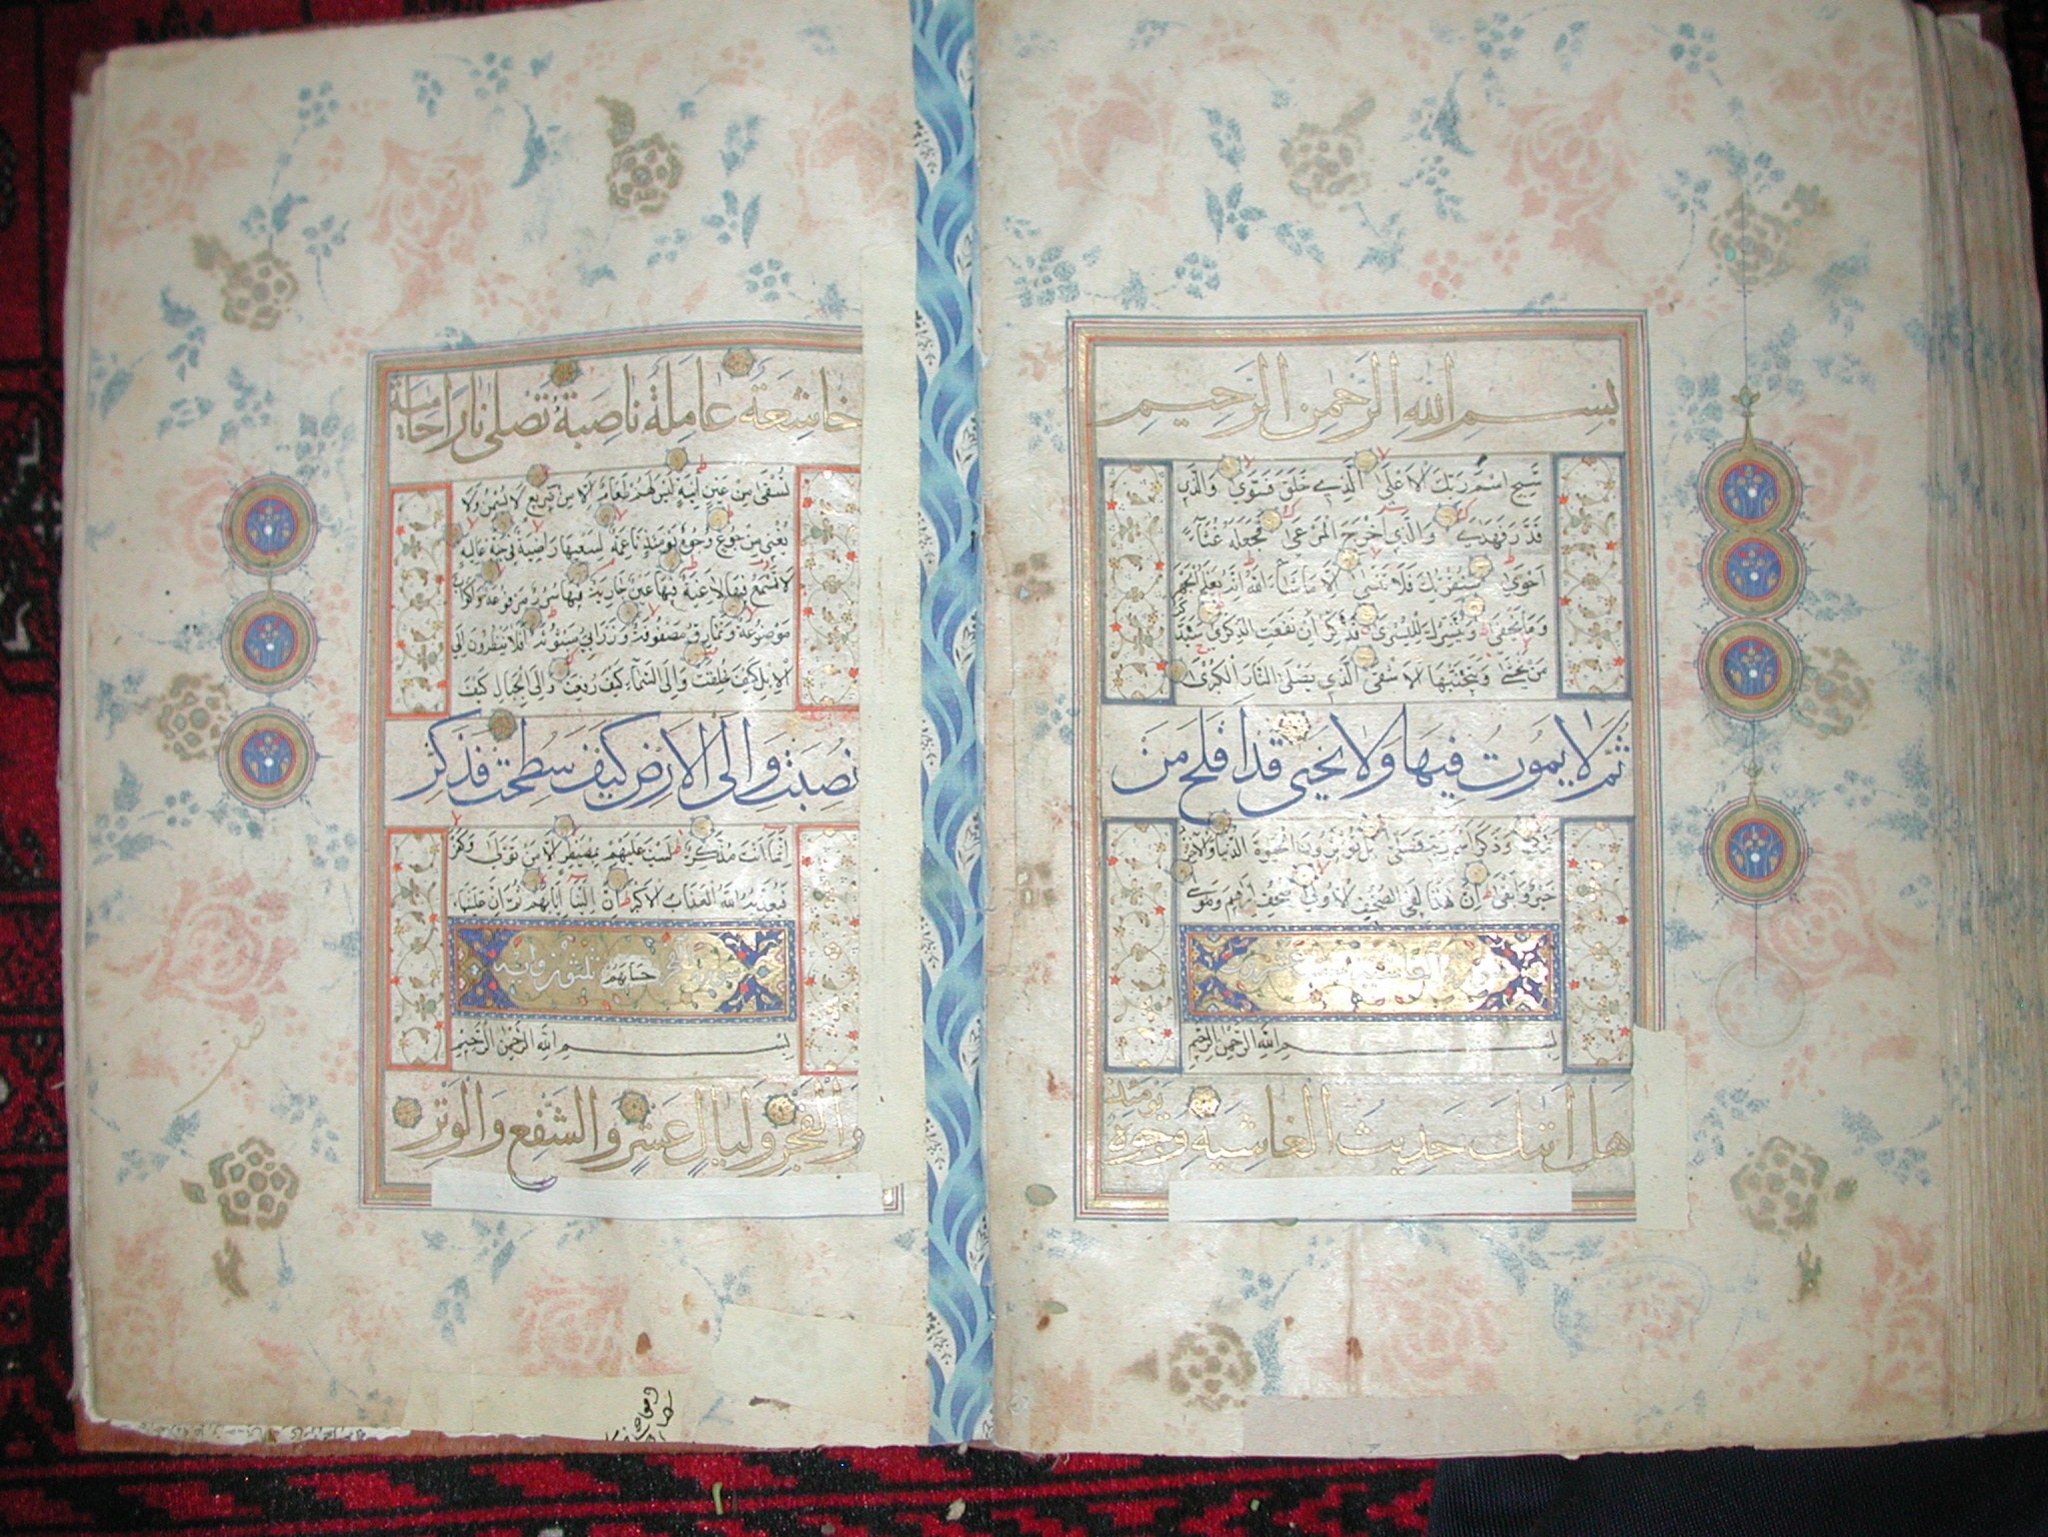 بسم الله الرحمن الرحيم
سَبِّحِ اسْمَ رَبِّكَ الاَعْلَى الَّذِي خَلَقَ فَسَوَّى وَالَّذِي
قَدَّرَ فَهَدَى وَالَّذِي اَخْرَجَ الْمَرْعَى فَجَعَلَهُ غُثَاءً
اَحْوَى سَنُقْرِئُكَ فَلَا تَنْسَى اِلَّا مَا شَاءَ اللهُ اِنَّهُ يَعْلَمُ الْجَهْرَ
وَمَا يَخْفَى وَنُيَسِّرُكَ لِلْيُسْرَى فَذَكِّرْ اِنْ نَفَعَتِ الذِّكْرَى سَيَذَّكَّرُ
مَنْ يَخْشَى وَيَتَجَنَّبُهَا الاَشْقَى الَّذِي يَصْلَى النَّارَ الْكُبْرَى
ثُمَّ لَا يَمُوتُ فِيهَا وَلَا يَحْيَى قَدْ اَفْلَحَ مَنْ
تَزَكَّى وَذَكَرَ اسْمَ رَبِّهِ فَصَلَّى بَلْ تُؤْثِرُونَ الْحَيٰوةَ الدُّنْيَا وَالاٰخِرَةُ
خَيْرٌ وَاَبْقَى اِنَّ هٰذَا لَفِي الصُّحُفِ الاُولَى صُحُفِ اِبْرٰهِيمَ وَمُوسَى
الغاشية
بسم الله الرحمن الرحيم
هَلْ اَتٰىكَ حَدِيثُ الْغَاشِيَةِ وُجُوهٌ يَوْمَئِذٍ
خَاشِعَةٌ عَامِلَةٌ نَاصِبَةٌ تَصْلَى نَارًا حَامِيَةً
تُسْقَى مِنْ عَيْنٍ اٰنِيَةٍ لَيْسَ لَهُمْ طَعَامٌ اِلَّا مِنْ ضَرِيعٍ لَا يُسْمِنُ وَلَا
يُغْنِي مِنْ جُوعٍ وُجُوهٌ يَوْمَئِذٍ نَاعِمَةٌ لِسَعْيِهَا رَاضِيَةٌ فِي جَنَّةٍ عَالِيَةٍ
لَا تَسْمَعُ فِيهَا لَاغِيَةً فِيهَا عَيْنٌ جَارِيَةٌ فِيهَا سُرُرٌ مَرْفُوعَةٌ وَاَكْوَابٌ
مَوْضُوعَةٌ وَنَمَارِقُ مَصْفُوفَةٌ وَزَرَابِيُّ مَبْثُوثَةٌ اَفَلَا يَنْظُرُونَ اِلَى
الاِبِلِ كَيْفَ خُلِقَتْ وَاِلَى السَّمَاءِ كَيْفَ رُفِعَتْ وَاِلَى الْجِبَالِ كَيْفَ
نُصِبَتْ وَاِلَى الاَرْضِ كَيْفَ سُطِحَتْ فَذَكِّرْ
اِنَّمَا اَنْتَ مُذَكِّرٌ لَسْتَ عَلَيْهِمْ بِمُصَيْطِرٍ اِلَّا مَنْ تَوَلَّى وَكَفَرَ
فَيُعَذِّبُهُ اللهُ الْعَذَابَ الاَكْبَرَ اِنَّ اِلَيْنَا اِيَابَهُمْ ثُمَّ اِنَّ عَلَيْنَا
حِسَابَهُمْ ثلثون
بسم الله الرحمن الرحيم
وَالْفَجْرِ وَلَيَالٍ عَشْرٍ وَالشَّفْعِ وَالْوَتْرِ